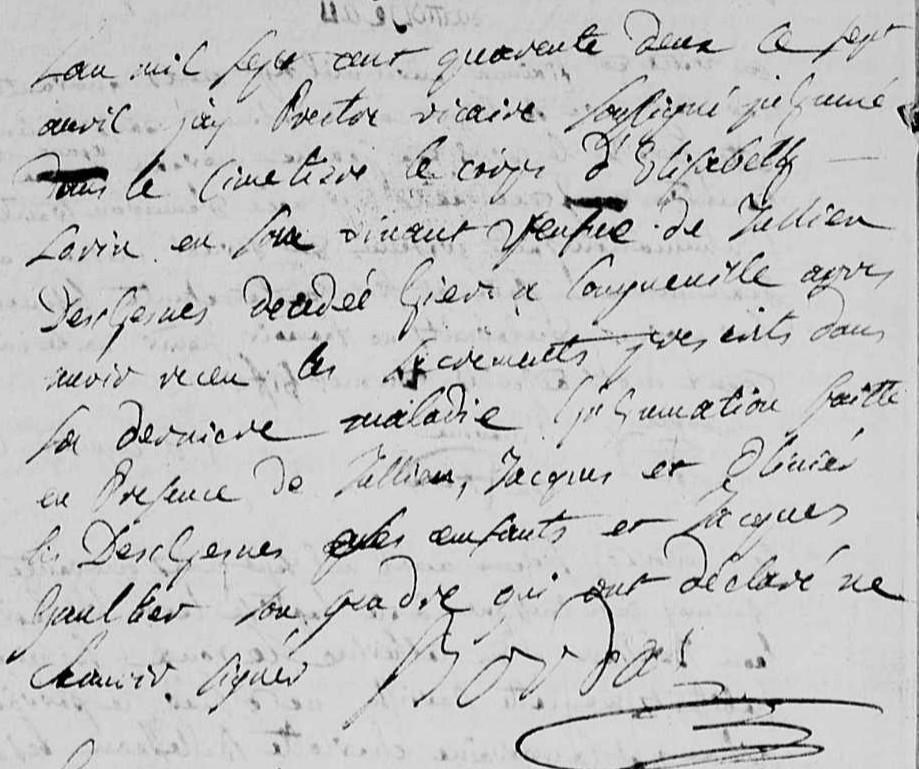 Lan mil sept cent quarente deux le sept
avril jay Prestre vicaire soussigné inhumé
dans le Cimetiere le corps d'Elisabeth
Lorin en son vivant veufve de Jullien
Deschesnes decedée hier a Longueville apres
avoir receu les sacrements presents dans
sa derniere maladie linhumation faitte
en Presence de Jullien, Jacques et Olivier
les Deschesnes ses enfants et Jacques
Gaultier son gendre qui ont déclaré ne
scavoir signer